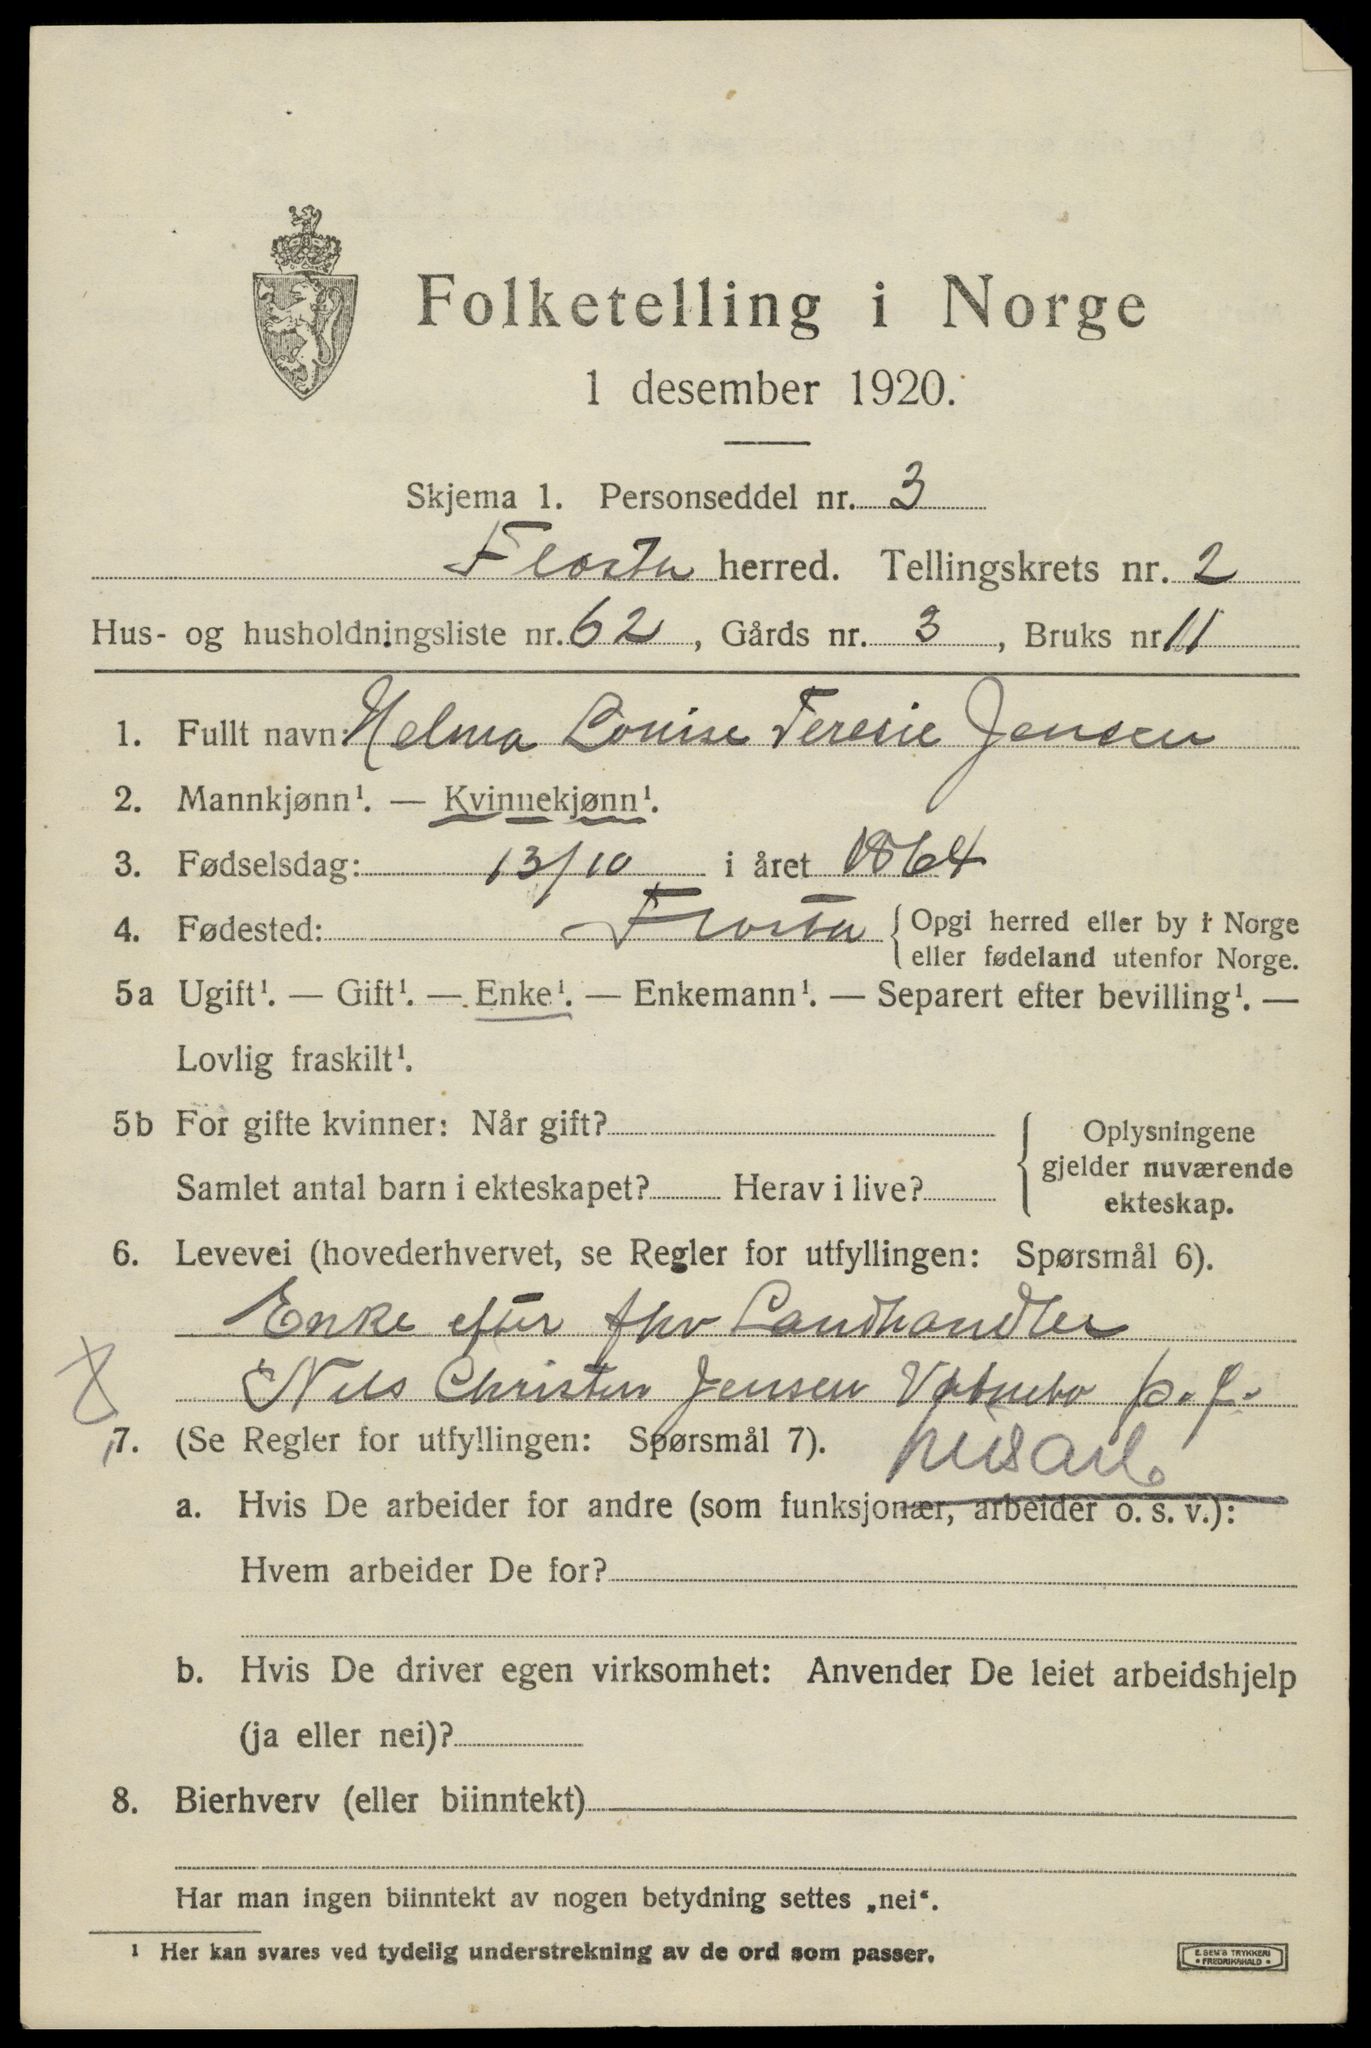 Folketelling i Norge
1 desember 1920.
Skjema 1. Personseddel nr. 3
Flosta herred. Tellingskrets nr. 2
Hus- og husholdningsliste nr. 62, Gårds nr. 3, Bruks nr 11
1. Fullt navn: Helma Louise Teresie Jensen
2. Mannkjønn¹. — Kvinnekjønn¹.
3. Fødselsdag: 13/10 i året 1864
4. Fødested: Flosta { Opgi herred eller by i Norge
eller fødeland utenfor Norge.
5a Ugift¹. — Gift¹. — Enke¹. — Enkemann¹. — Separert efter bevilling¹. —
Lovlig fraskilt¹.
5b For gifte kvinner: Når gift?
Samlet antal barn i ekteskapet? Herav i live?
{ Oplysningene
gjelder nuværende
ekteskap.
6. Levevei (hovederhvervet, se Regler for utfyllingen: Spørsmål 6).
Enke efter fhv Landhandler
Nils Christen Jensen p. f.
7. (Se Regler for utfyllingen: Spørsmål 7).
a. Hvis De arbeider for andre (som funksjonær, arbeider o. s. v.):
Hvem arbeider De for?
b. Hvis De driver egen virksomhet: Anvender De leiet arbeidshjelp
(ja eller nei)?
8. Bierhverv (eller biinntekt)
Har man ingen biinntekt av nogen betydning settes „nei“.
¹ Her kan svares ved tydelig understrekning av de ord som passer.
E. SEM'S TRYKKERI
• FREDRIKSHALD •